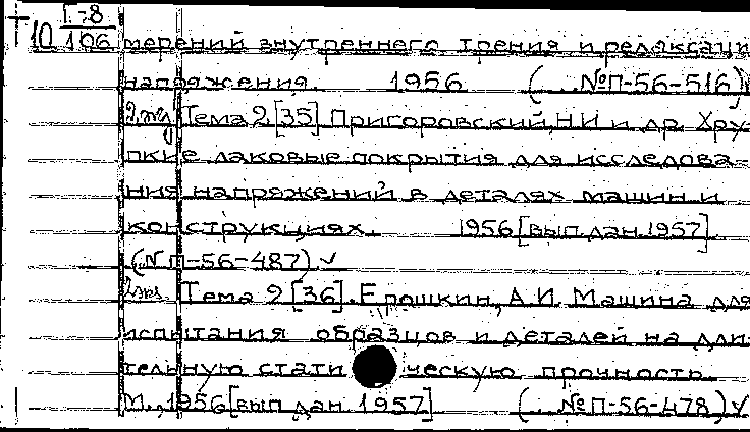 Г-8
10 106 мерений внутреннего трения и релаксаци
напряжения. 1956 (..№П-56-516)
2 экз Тема 2 [35] Пригоровский, Н И и др. Хру-
пкие лаковые покрытия для исследова-
ния напряжений в деталях машин и
конструкциях. 1956 [вып дан. 1957].
(..№ П-56-487) ✓
2 экз Тема 2 [36]. Ерошкин, А И. Машина для
испытания образцов и деталей на дли-
тельную статическую прочность
М., 1956 [вып дан 1957] (.. №П-56-478) ✓